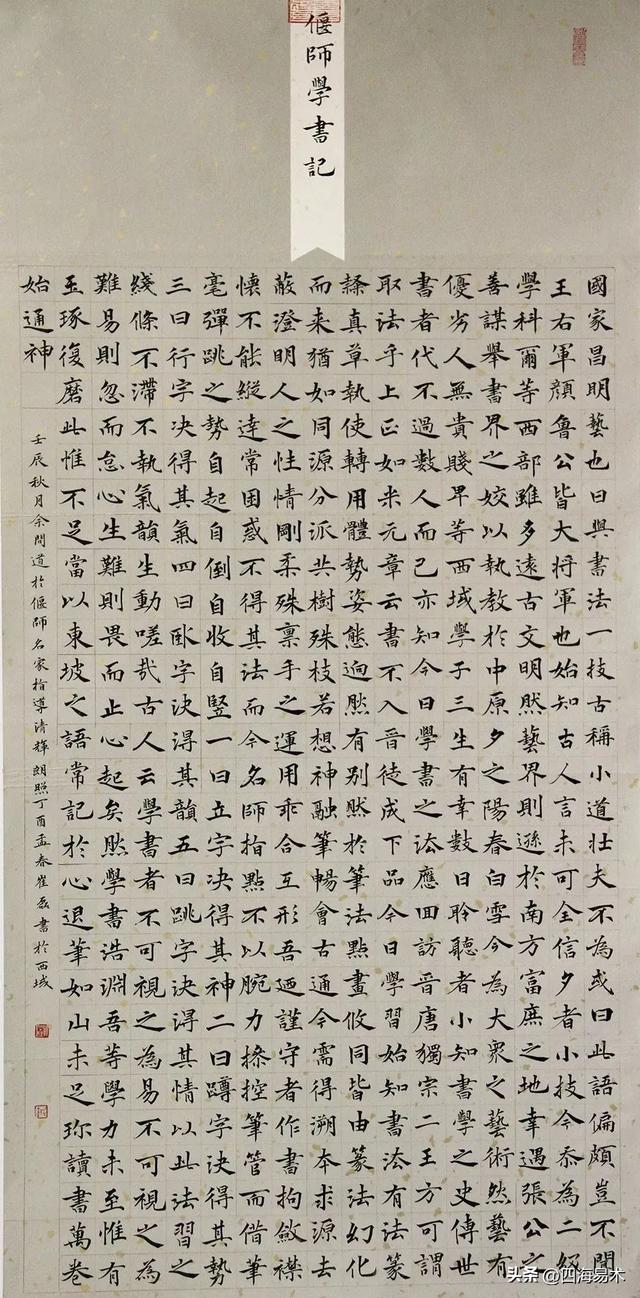 偃師學書記
國家昌明藝也曰與書法一技古稱小道壯夫不為或曰此語偏頗豈不聞
王右軍顏魯公皆大將軍也始知古人言未可全信夕者小技今忝為二級
學科爾等西部雖多遠古文明然藝界則遜於南方富庶之地幸遇張公之
善謀舉書界之姣以執教於中原夕之陽春白雪今為大衆之藝術然藝有
優劣人無貴賤早等西域學子三生有幸數日聆聽者小知書學之史傳世
書者代不過數人而已亦知今日學書之法應回訪晉唐獨宗二王方可謂
取法乎上正如米元章云書不入晉徒成下品今日學習始知書法有法篆
隸真草執使轉用體勢姿態迥然有别然於筆法點畫攸同皆由篆法幻化
而来猶如同源分派共樹殊枝若想神融筆暢會古通今需得溯本求源去
蔽澄明人之性情剛柔殊禀手之運用乖合互形吾迺謹守者作書拘斂襟
懷不能縱達常困惑不得其法而今名師指點不以腕力撩控筆管而借筆
毫彈跳之勢自起自倒自收自竖一曰立字决得其神二曰蹲字訣得其勢
三曰行字决得其氣四曰臥字決得其韻五曰跳字訣得其情以此法習之
綫條不滯不執氣韻生動嗟哉古人云學書者不可視之為易不可視之為
難易則忽而怠心生難則畏而止心起矣然學書浩淵吾等學力未至惟有
玉琢復磨此惟不足當以東坡之語常記於心退筆如山未足珍讀書萬卷
始通神
壬辰秋月余問道於偃師名家指導清輝朗照丁酉孟春崔磊書於西域
头条@四海易木